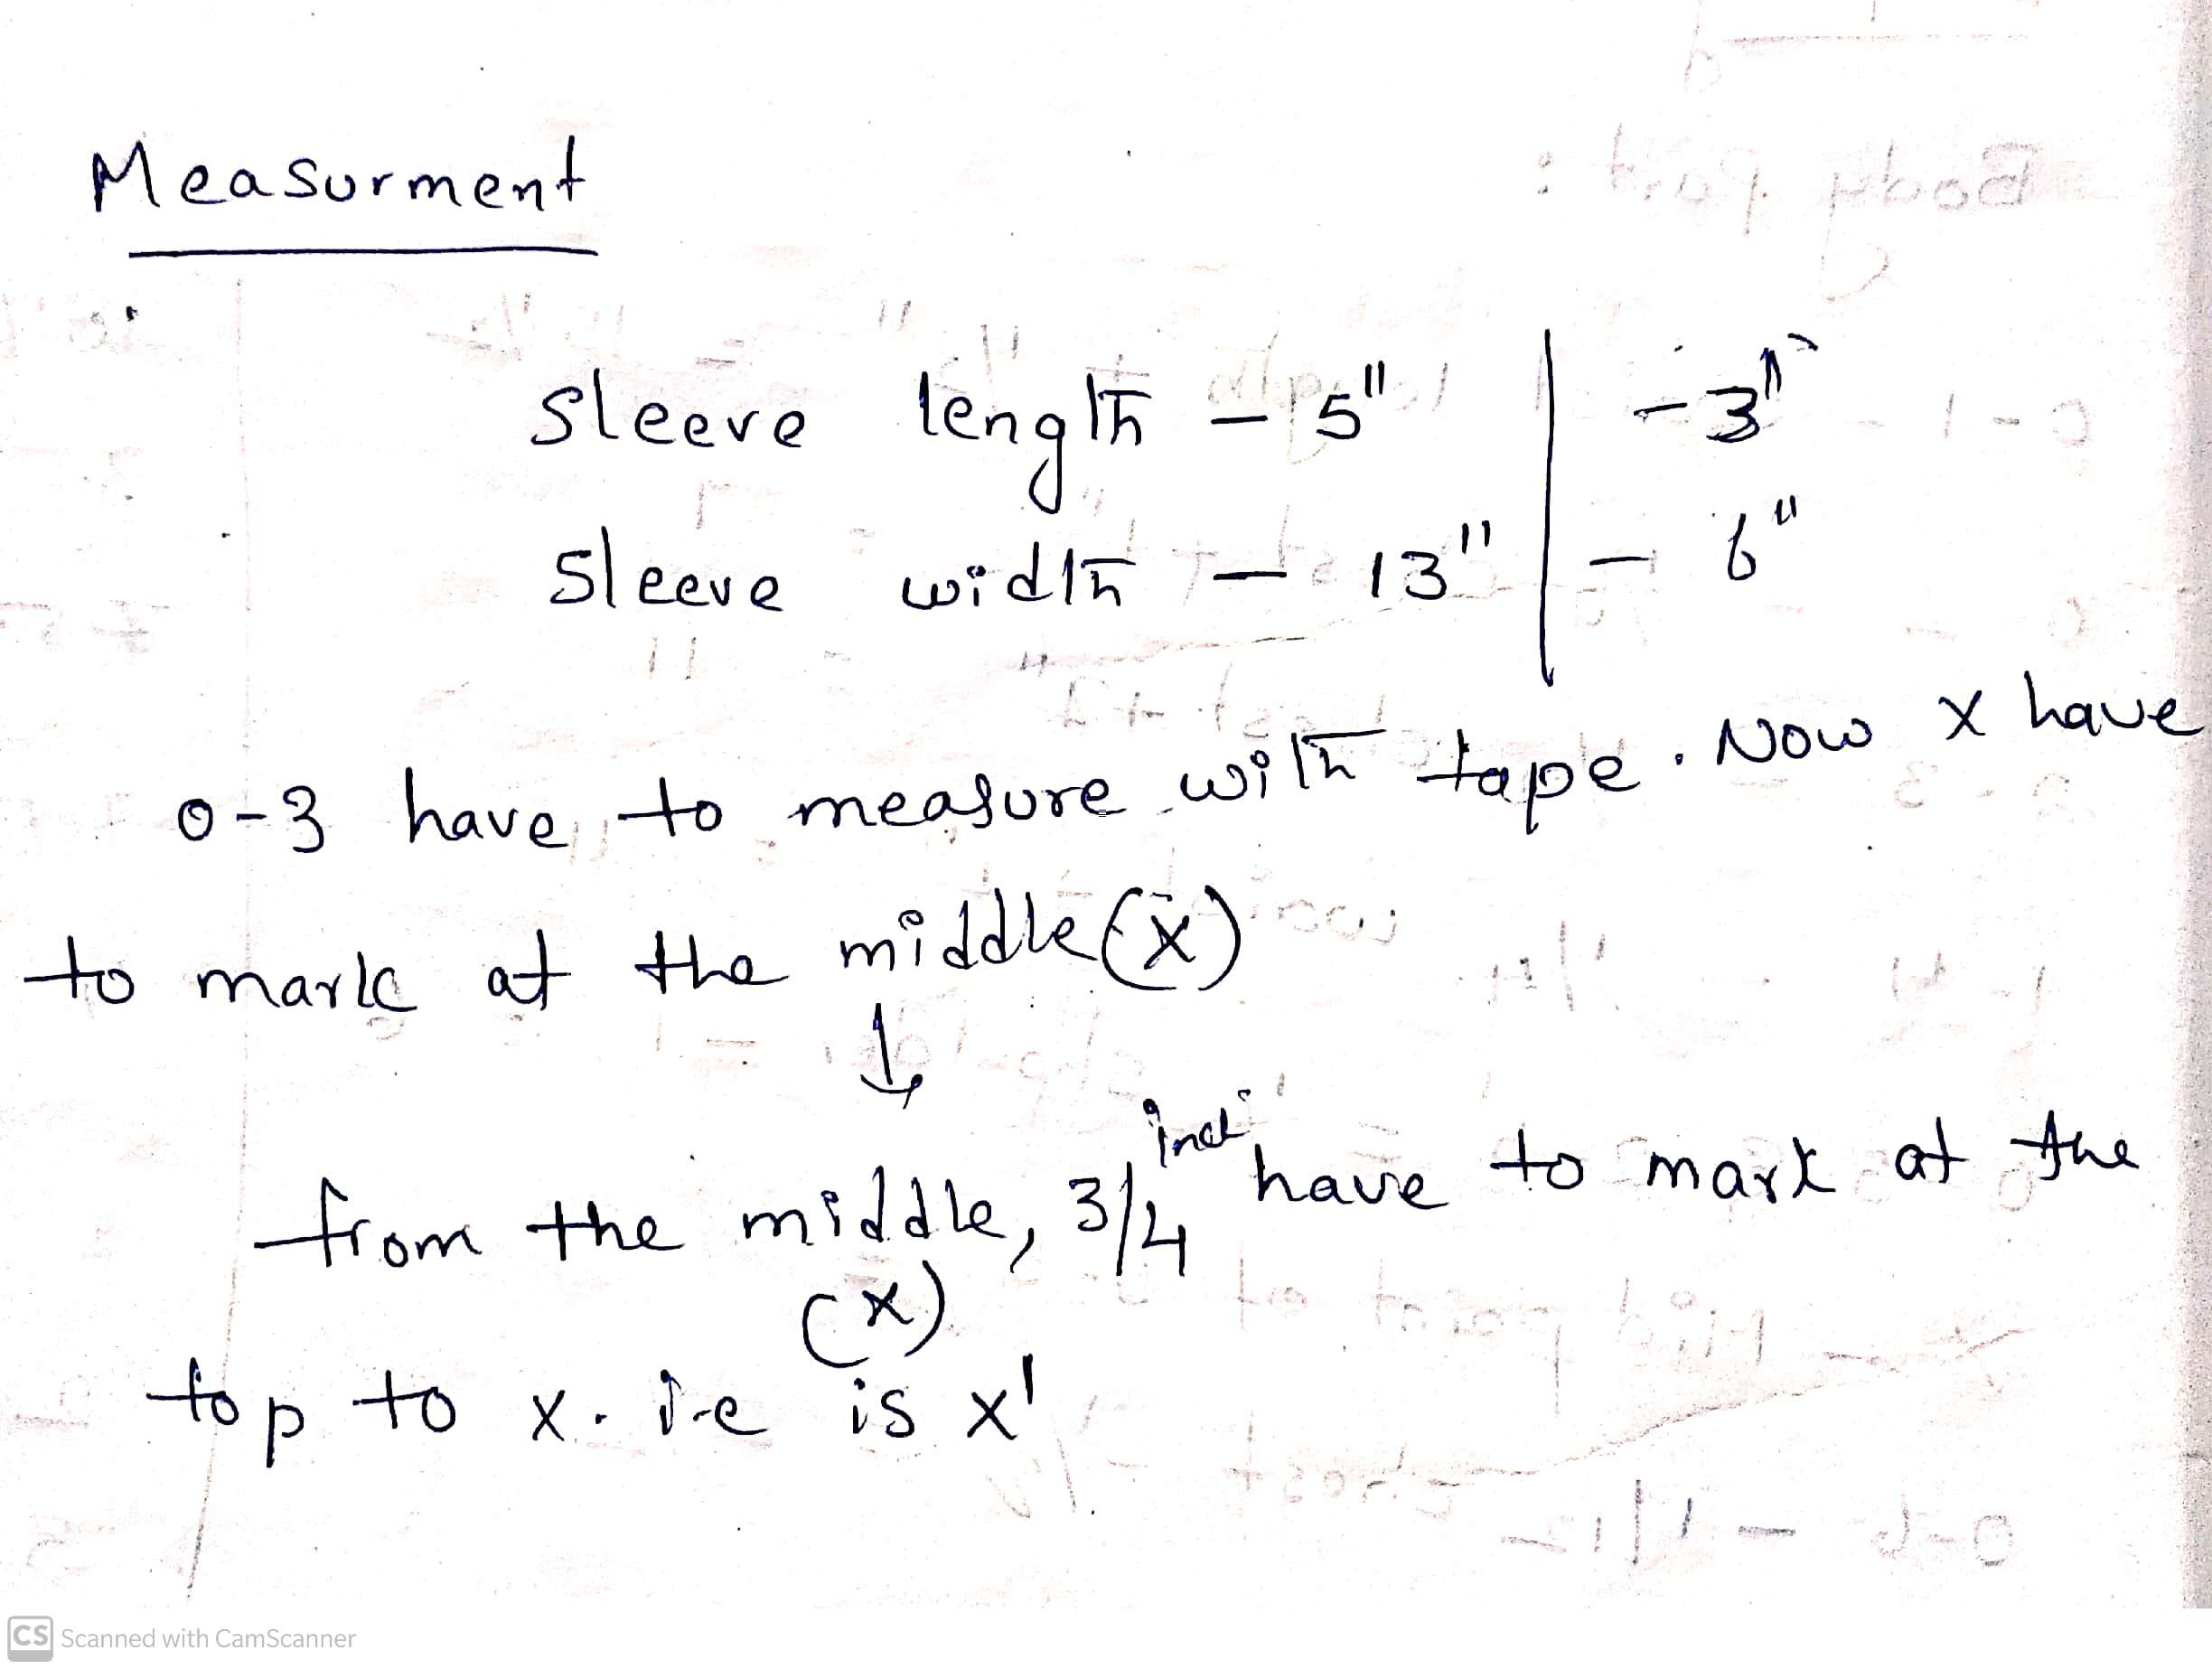 Measurment
sleeve length - 5" | - 3"
sleeve width - 13" | - 6"
0-3 have to measure with tape. Now x have
to mark at the middle (x)
↓
from the middle, 3/4 inch have to mark at the
(x)
top to x. i.e is x'
CS Scanned with CamScanner